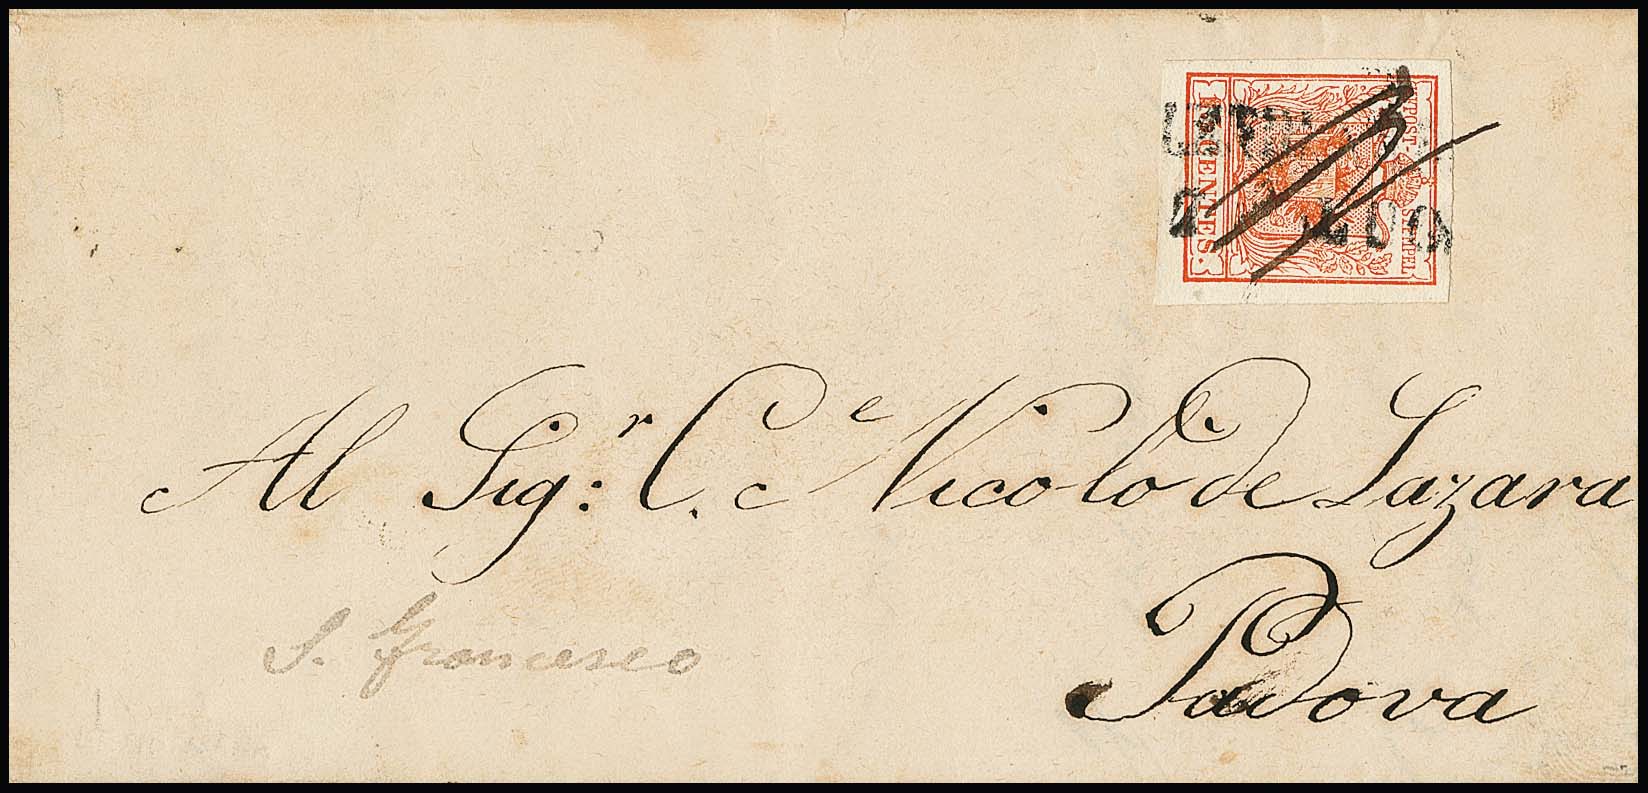 KKPOST-STEMPEL
15 CENTES.
7 LUG
Al Sig:r C.e Nicolò de Lazara
Padova
S. Francesco